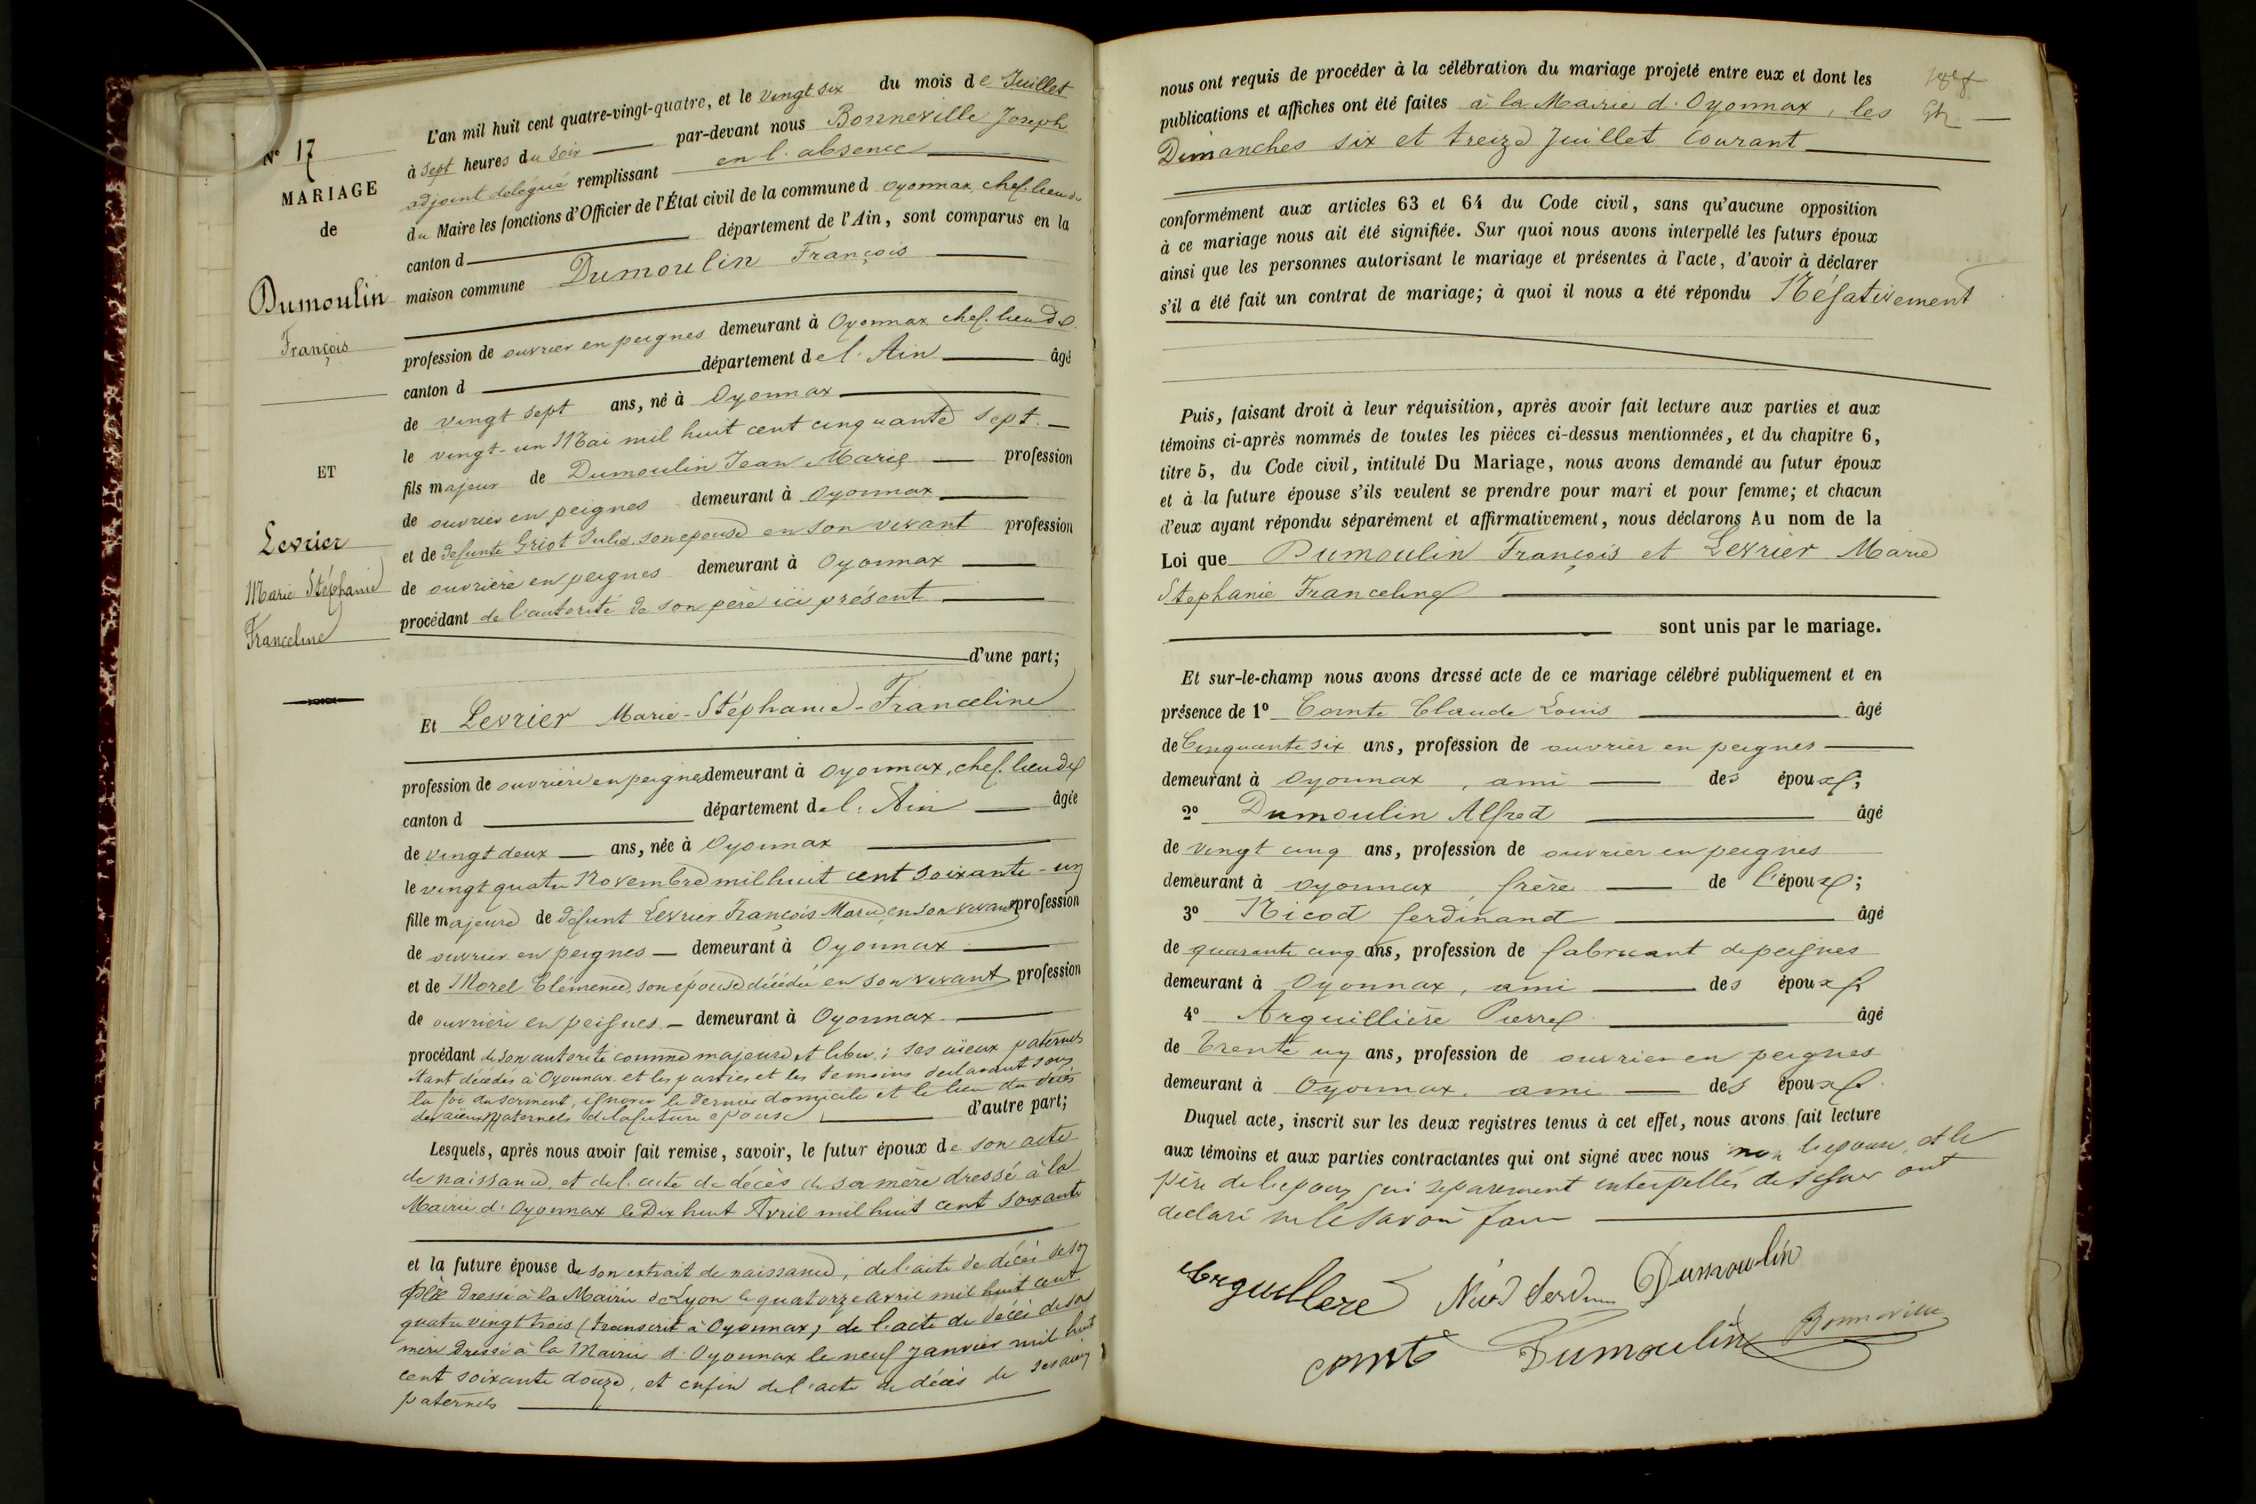 N° 17
MARIAGE
de
Dumoulin
François
ET
Levrier
Marie Stéphanie
Franceline
L'an mil huit cent quatre-vingt-quatre, et le vingt six du mois de Juillet
à sept heures du soir par-devant nous Bonneville Joseph
adjoint délégué remplissant en l'absence
du Maire les fonctions d'Officier de l'État civil de la commune d Oyonnax, chef-lieu de
canton d département de l'Ain, sont comparus en la
maison commune Dumoulin François
profession de ouvrier en peignes demeurant à Oyonnax, chef-lieu de
canton d département de l'Ain âgé
de vingt sept ans, né à Oyonnax
le vingt-un Mai mil huit cent cinquante sept.
fils majeur de Dumoulin Jean Marie profession
de ouvrier en peignes demeurant à Oyonnax
et de défunte Griot Julie, son épouse en son vivant profession
de ouvrière en peignes demeurant à Oyonnax
procédant de l'autorité de son père ici présent
d'une part;
Et Levrier Marie-Stéphanie-Franceline
profession de ouvrière en peignes demeurant à Oyonnax, chef-lieu de
canton d département de l'Ain âgée
de vingt deux ans, née à Oyonnax
le vingt quatre Novembre mil huit cent soixante-un
fille majeure de défunt Levrier François Marie, en son vivant profession
de ouvrier en peignes demeurant à Oyonnax
et de Morel Clémence, son épouse décédée en son vivant profession
de ouvrière en peignes demeurant à Oyonnax
procédant de son autorité comme majeure et libre; ses aïeux paternels
étant décédés à Oyonnax et les parties et les témoins déclarant sous
la foi du serment, ignorer le dernier domicile et le lieu du décès
des aïeux maternels de la future épouse d'autre part;
Lesquels, après nous avoir fait remise, savoir, le futur époux de son acte
de naissance, et de l'acte de décès de sa mère dressé à la
Mairie d'Oyonnax le Dix huit Avril mil huit cent soixante
et la future épouse de son extrait de naissance, de l'acte de décès de son
père dressé à la Mairie de Lyon le quatorze avril mil huit cent
quatre vingt trois (transcrit à Oyonnax) de l'acte de décès de sa
mère dressé à la Mairie d'Oyonnax le neuf janvier mil huit
cent soixante douze, et enfin de l'acte de décès de ses aïeux
paternels
nous ont requis de procéder à la célébration du mariage projeté entre eux et dont les
publications et affiches ont été faites à la Mairie d'Oyonnax, les
Dimanches six et treize Juillet courant
conformément aux articles 63 et 64 du Code civil, sans qu'aucune opposition
à ce mariage nous ait été signifiée. Sur quoi nous avons interpellé les futurs époux
ainsi que les personnes autorisant le mariage et présentes à l'acte, d'avoir à déclarer
s'il a été fait un contrat de mariage; à quoi il nous a été répondu Négativement
Puis, faisant droit à leur réquisition, après avoir fait lecture aux parties et aux
témoins ci-après nommés de toutes les pièces ci-dessus mentionnées, et du chapitre 6,
titre 5, du Code civil, intitulé Du Mariage, nous avons demandé au futur époux
et à la future épouse s'ils veulent se prendre pour mari et pour femme; et chacun
d'eux ayant répondu séparément et affirmativement, nous déclarons Au nom de la
Loi que Dumoulin François et Levrier Marie
Stephanie Franceline
sont unis par le mariage.
Et sur-le-champ nous avons dressé acte de ce mariage célébré publiquement et en
présence de 1° Comte Claude Louis âgé
de Cinquante six ans, profession de ouvrier en peignes
demeurant à Oyonnax, ami des époux;
2° Dumoulin Alfred âgé
de vingt cinq ans, profession de ouvrier en peignes
demeurant à Oyonnax, frère de l'époux;
3° Nicod ferdinand âgé
de quarante cinq ans, profession de fabricant de peignes
demeurant à Oyonnax, ami des époux;
4° Arguillière Pierre âgé
de Trente un ans, profession de ouvrier en peignes
demeurant à Oyonnax, ami des époux.
Duquel acte, inscrit sur les deux registres tenus à cet effet, nous avons fait lecture
aux témoins et aux parties contractantes qui ont signé avec nous non l'épouse, et le
père de l'époux qui séparément interpellés de signer ont
déclaré ne le savoir faire
Arguillere Nicod Ferd Dumoulin
Comte Dumoulin Bonneville